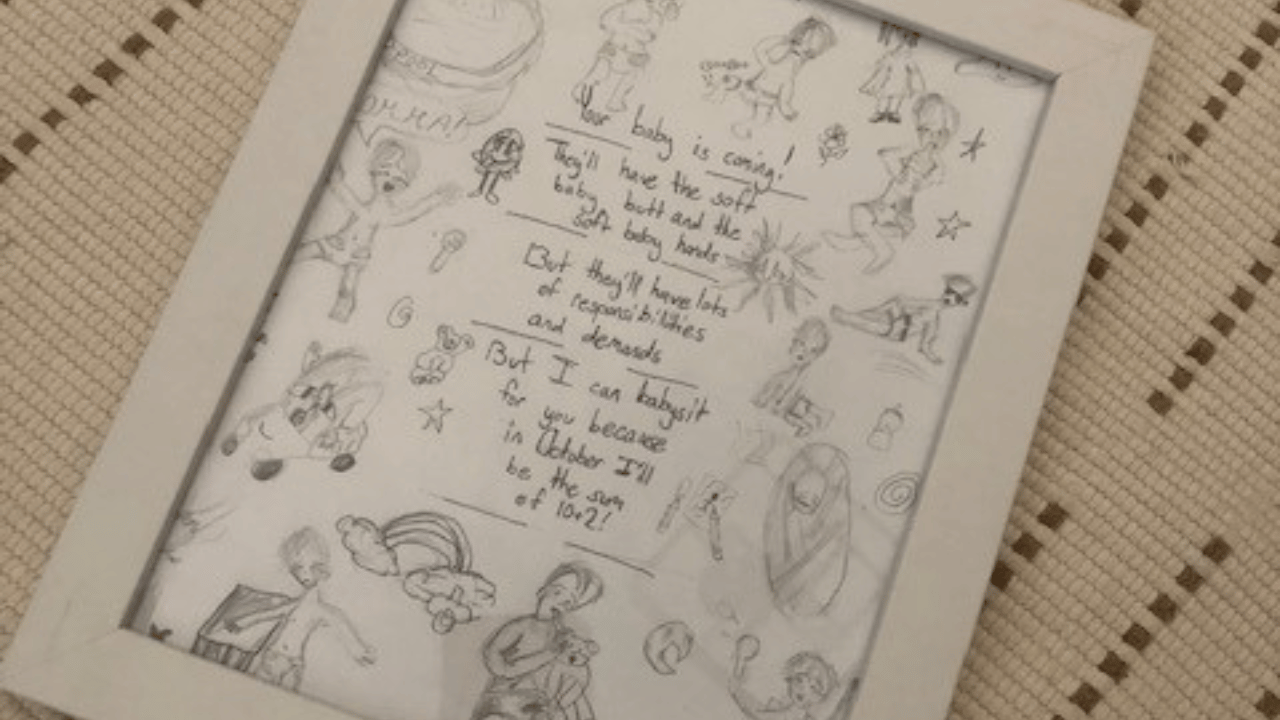 Your baby is coming!
They'll have the soft
baby butt and the
soft baby hands
But they'll have lots
of responsibilities
and demands
But I can babysit
for you because
in October I'll
be the sum
of 10+2!